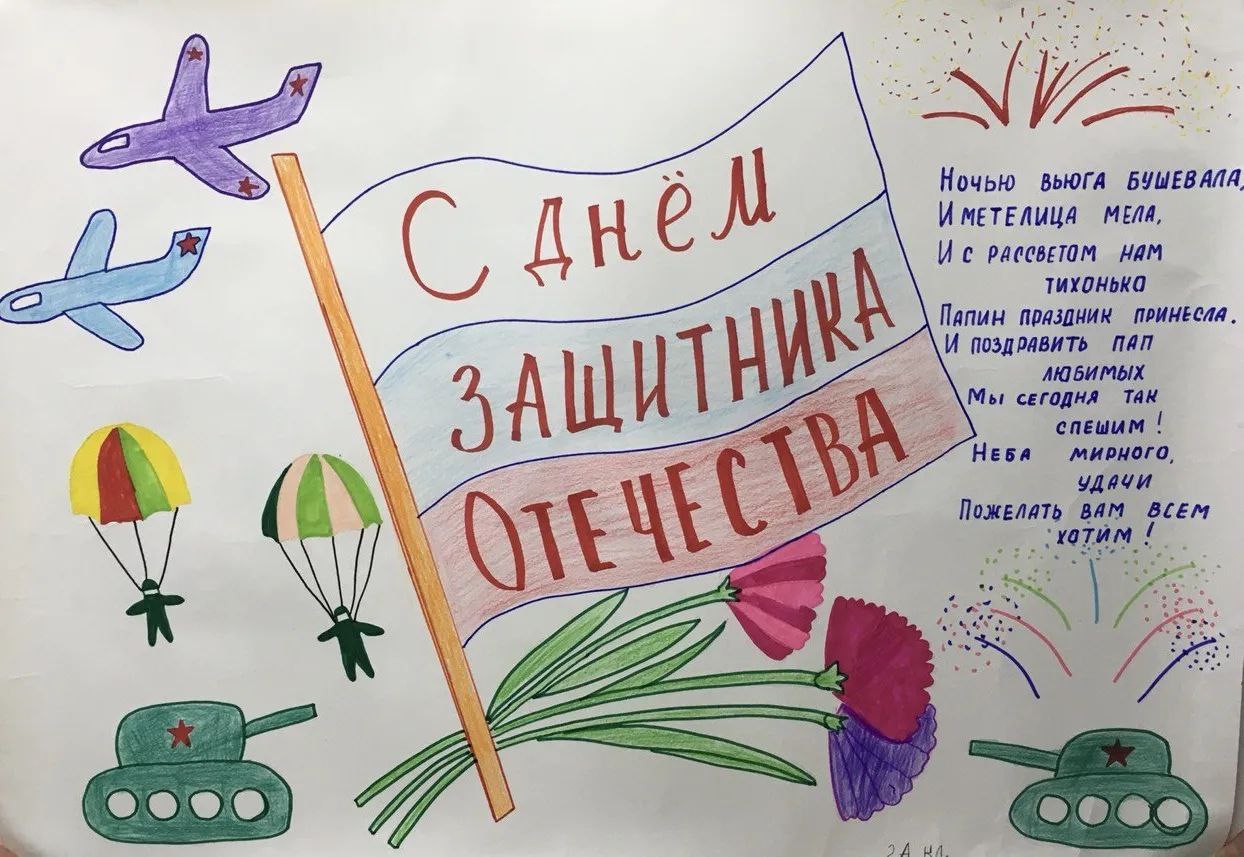 С днём
Защитника
Отечества
Ночью вьюга бушевала,
И метелица мела,
И с рассветом нам
тихонько
Папин праздник принесла.
И поздравить пап
любимых
Мы сегодня так
спешим!
Неба мирного,
удачи
Пожелать вам всем
хотим!
2А кл.